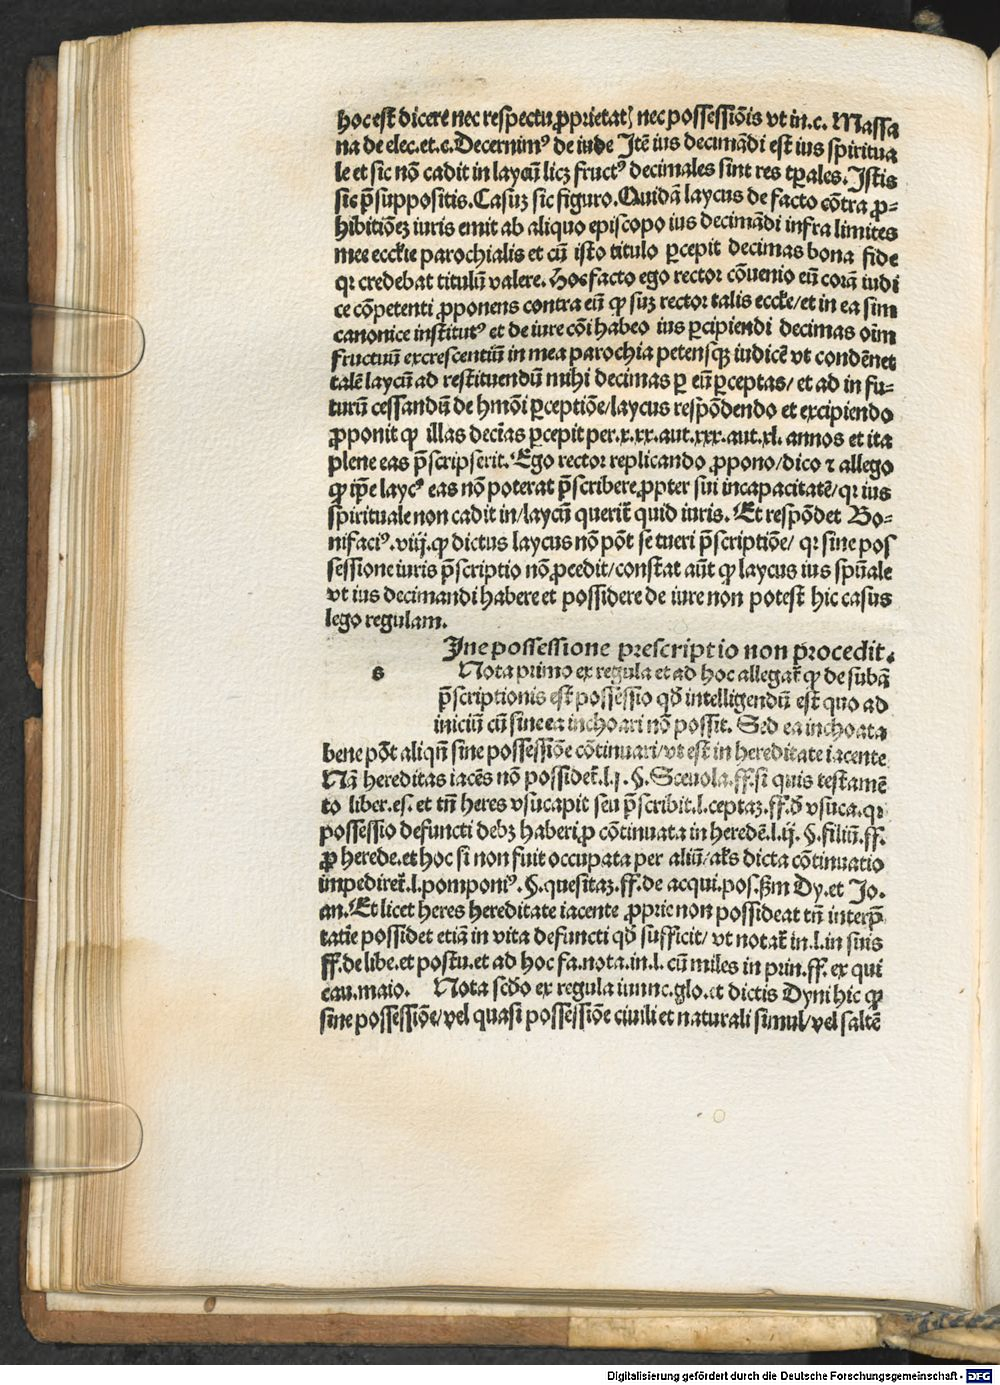 hoc est dicere nec respectu ꝓprietatꝭ nec possessiōis vt in.c. Massa
na de elec.et.c.Decernimꝰ de iude Itē ius decimādi est ius spiritua
le et sic nō cadit in laycū licꝫ fructꝰ decimales sint res tꝑales.Istis
sic p̄suppositis.Casuꝫ sic figuro.Quidā laycus de facto cōtra ꝓ-
hibitiōeꝫ iuris emit ab aliquo episcopo ius decimādi infra limites
mee eccl̄ie parochialis et cū isto titulo ꝑcepit decimas bona fide
qꝛ credebat titulū valere. Hoc facto ego rector cōuenio eū corā iudi
ce cōpetenti ꝓponens contra eū ꝙ suꝫ rector talis eccl̄e/et in ea sim
canonice institutꝰ et de iure cōi habeo ius ꝑcipiendi decimas oīm
fructuū excrescentiū in mea parochia petensqꝫ iudicē vt condēnet
talē laycū ad restituendū mihi decimas ꝑ eū ꝑceptas/ et ad in fu-
turū cessandū de hmōi ꝑceptiōe/laycus respōdendo et excipiendo
ꝓponit ꝙ illas decīas ꝑcepit per.x.xx.aut.xxx.aut.xl. annos et ita
plene eas p̄scripserit. Ego rector replicando ꝓpono/dico ⁊ allego
ꝙ ip̄e laycꝰ eas nō poterat p̄scribere ꝓpter sui incapacitatē/qꝛ ius
spirituale non cadit in/laycū querit̄ quid iuris. Et respōdet Bo-
nifaciꝰ.viij.ꝙ dictus laycus nō pōt se tueri p̄scriptiōe/ qꝛ sine pos
sessione iuris p̄scriptio nō ꝓcedit/constat aūt ꝙ laycus ius spūale
vt ius decimandi habere et possidere de iure non potest hic casus
lego regulam.
Ine possessione prescriptio non procedit.
s Nota primo ex regula et ad hoc allegat̄ ꝙ de subā
p̄scriptionis est possessio qd̄ intelligendū est quo ad
iniciū cū sine ea inchoari nō possit. Sed ea inchoata
bene pōt aliqn̄ sine possessiōe cōtinuari/vt est in hereditate iacente
Nā hereditas iacēs nō possidet̄.l.j .§.Sceuola.ff.si quis testamē
to liber.es. et tn̄ heres vsucapit seu p̄scribit.l.ceptaꝫ.ff.d̄ vsuca.qꝛ
possessio defuncti debꝫ haberi ꝓ cōtinuata in heredē.l.ij. §.filiū.ff.
ꝓ herede.et hoc si non fuit occupata per aliū/al̄s dicta cōtinuatio
impediret̄.l.pomponiꝰ.§.quesitaꝫ.ff.de acqui.pos.ẜm Dy.et Jo.
an.Et licet heres hereditate iacente ꝓprie non possideat tn̄ interp̄
tatīe possidet etiā in vita defuncti qd̄ sufficit/ vt notat̄ in.l.in suis
ff.de libe.et postu.et ad hoc fa.nota.in.l. cū miles in prin.ff. ex qui
cau.maio. Nota scd̄o ex regula iunc.glo.et dictis Dyni hic ꝙ
sine possessiōe/vel quasi possessiōe ciuili et naturali simul/vel saltē
Digitalisierung gefördert durch die Deutsche Forschungsgemeinschaft - DFG